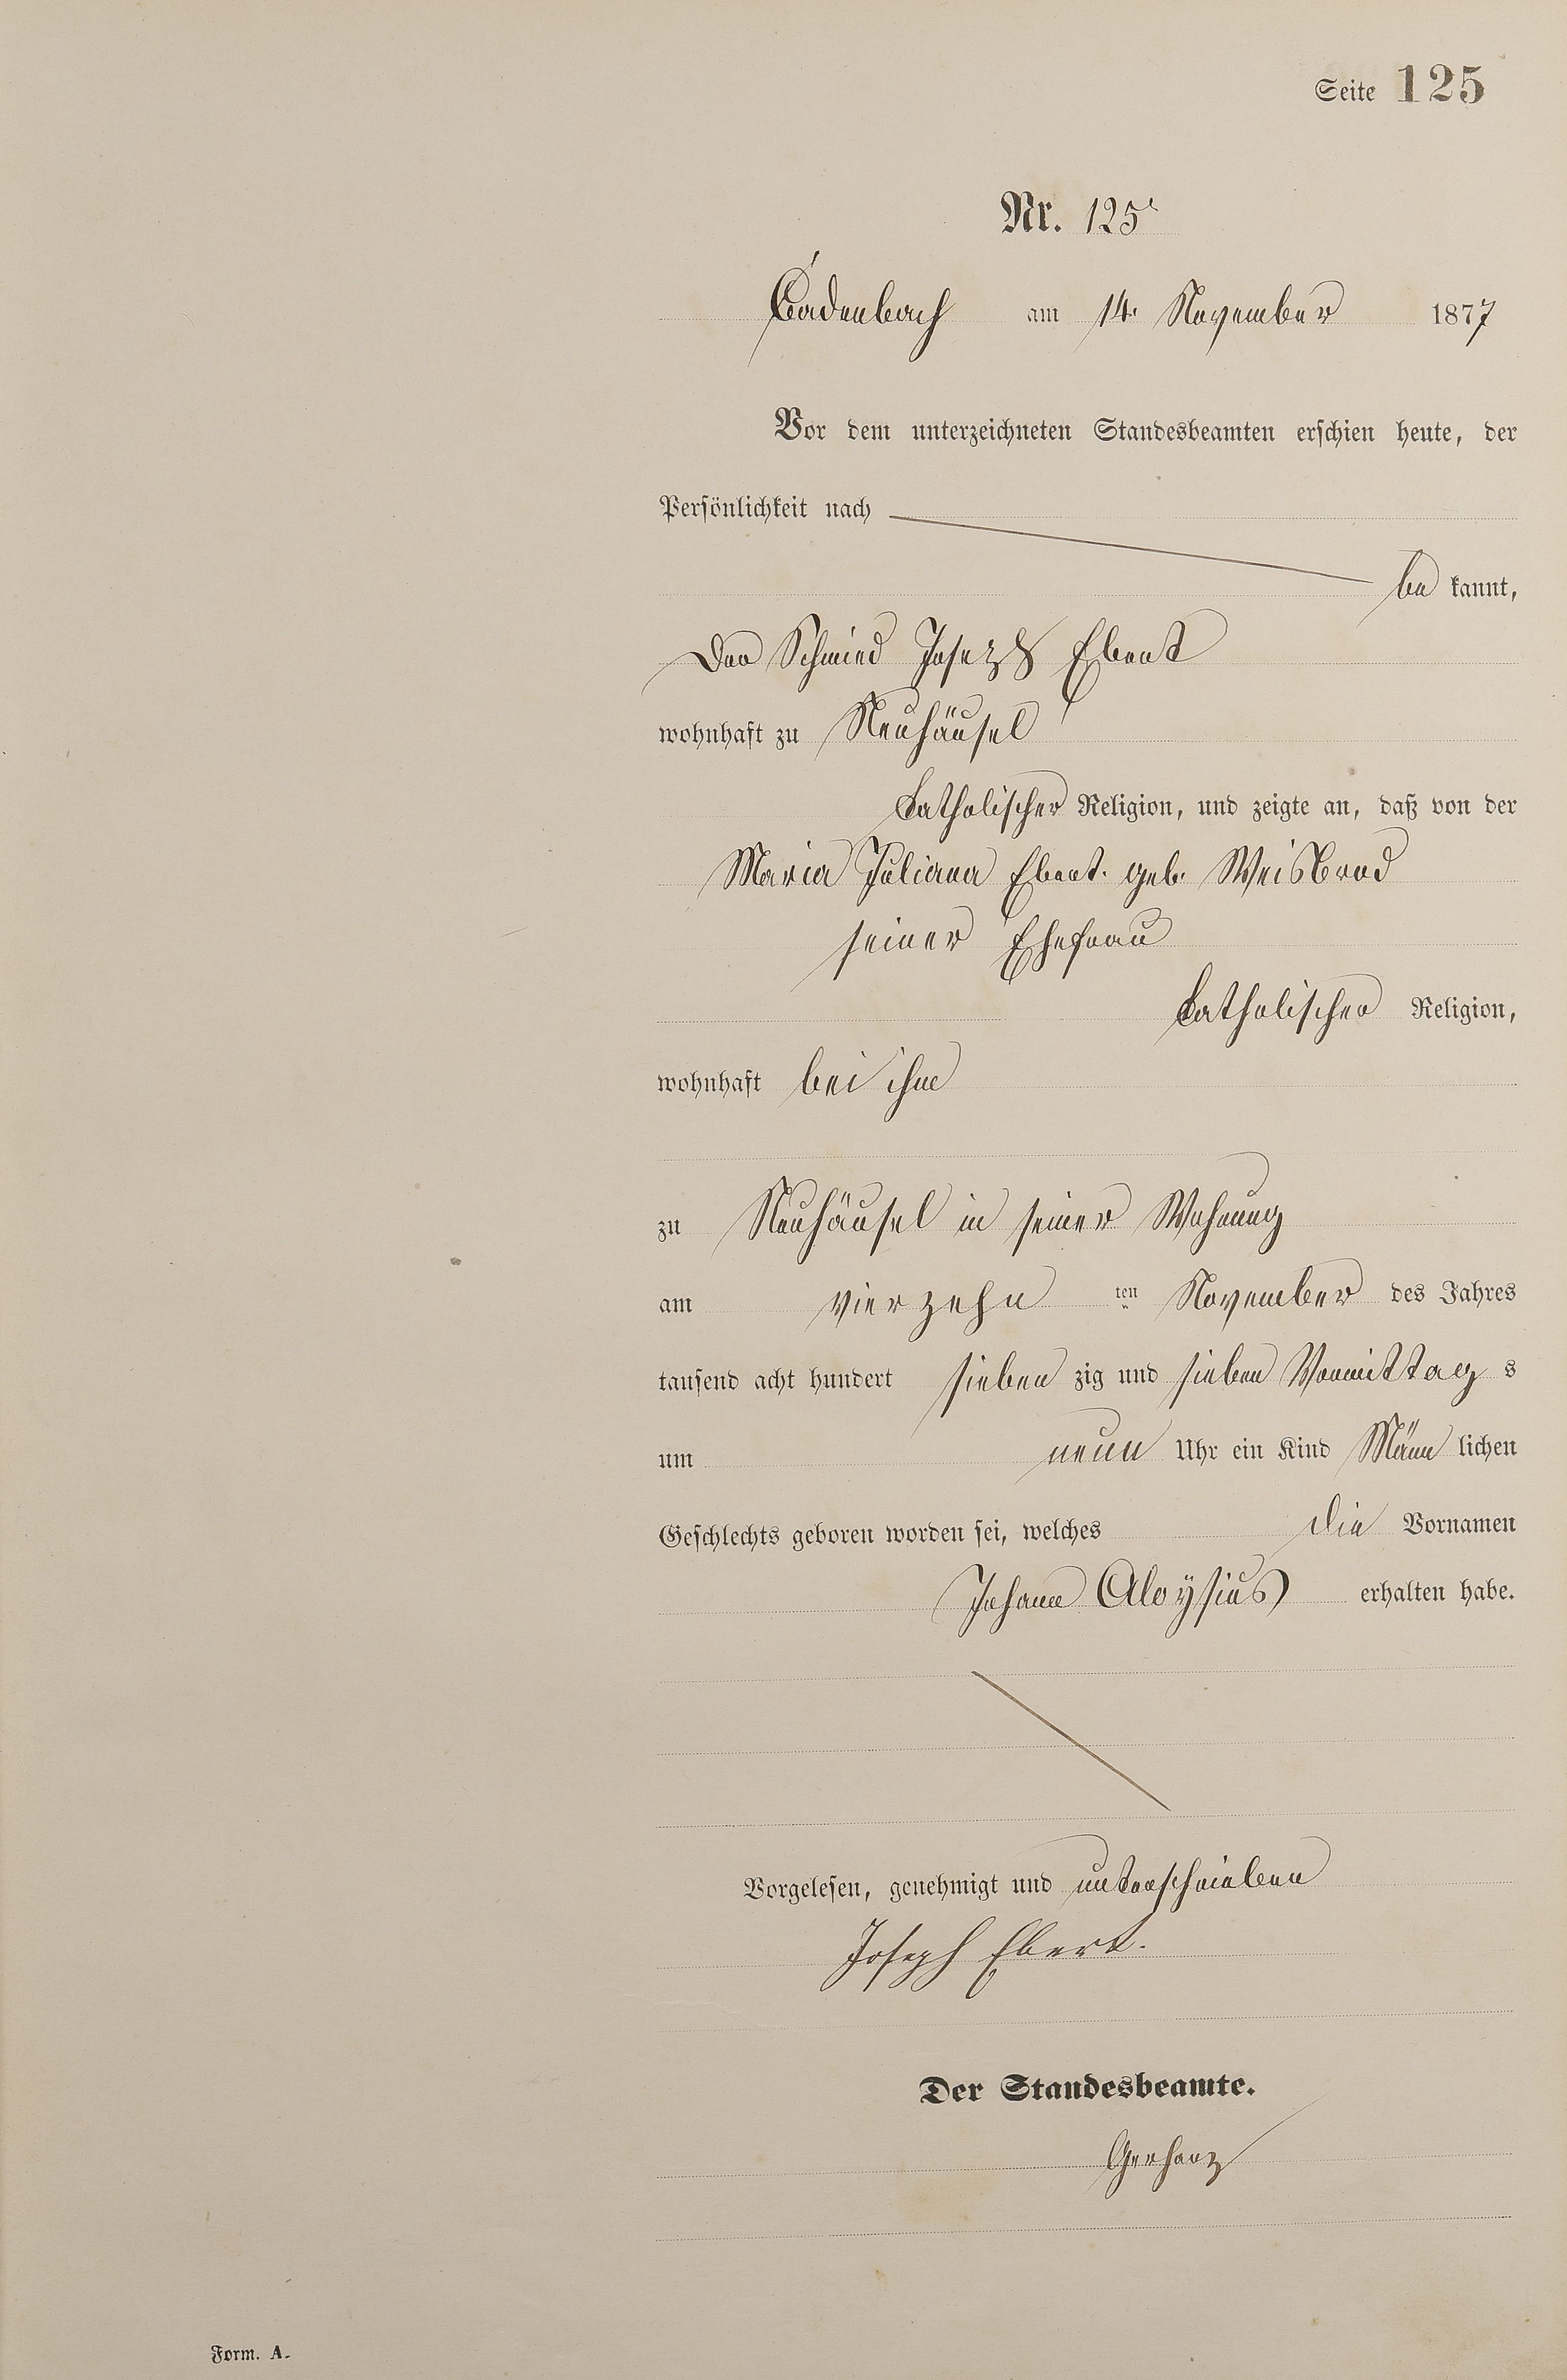 Seite 125
Nr. 125
Cadenbach am 14. November 1877
Vor dem unterzeichneten Standesbeamten erschien heute, der
Persönlichkeit nach
be kannt,
Der Schmied Joseph Ebert
wohnhaft zu Neuhäusel
katholischer Religion, und zeigte an, daß von der
Maria Juliana Ebert. geb. Weisbrod
seiner Ehefrau
katholischer Religion,
wohnhaft bei ihm
zu Neuhäusel in seiner Wohnung
am vierzehn ten November des Jahres
tausend acht hundert sieben zig und sieben Vormittag s
um neun Uhr ein Kind Männ lichen
Geschlechts geboren worden sei, welches die Vornamen
Johann Aloysius erhalten habe.
Vorgelesen, genehmigt und unterschrieben
Joseph Ebert.
Der Standesbeamte.
Gerharz
Form. A.